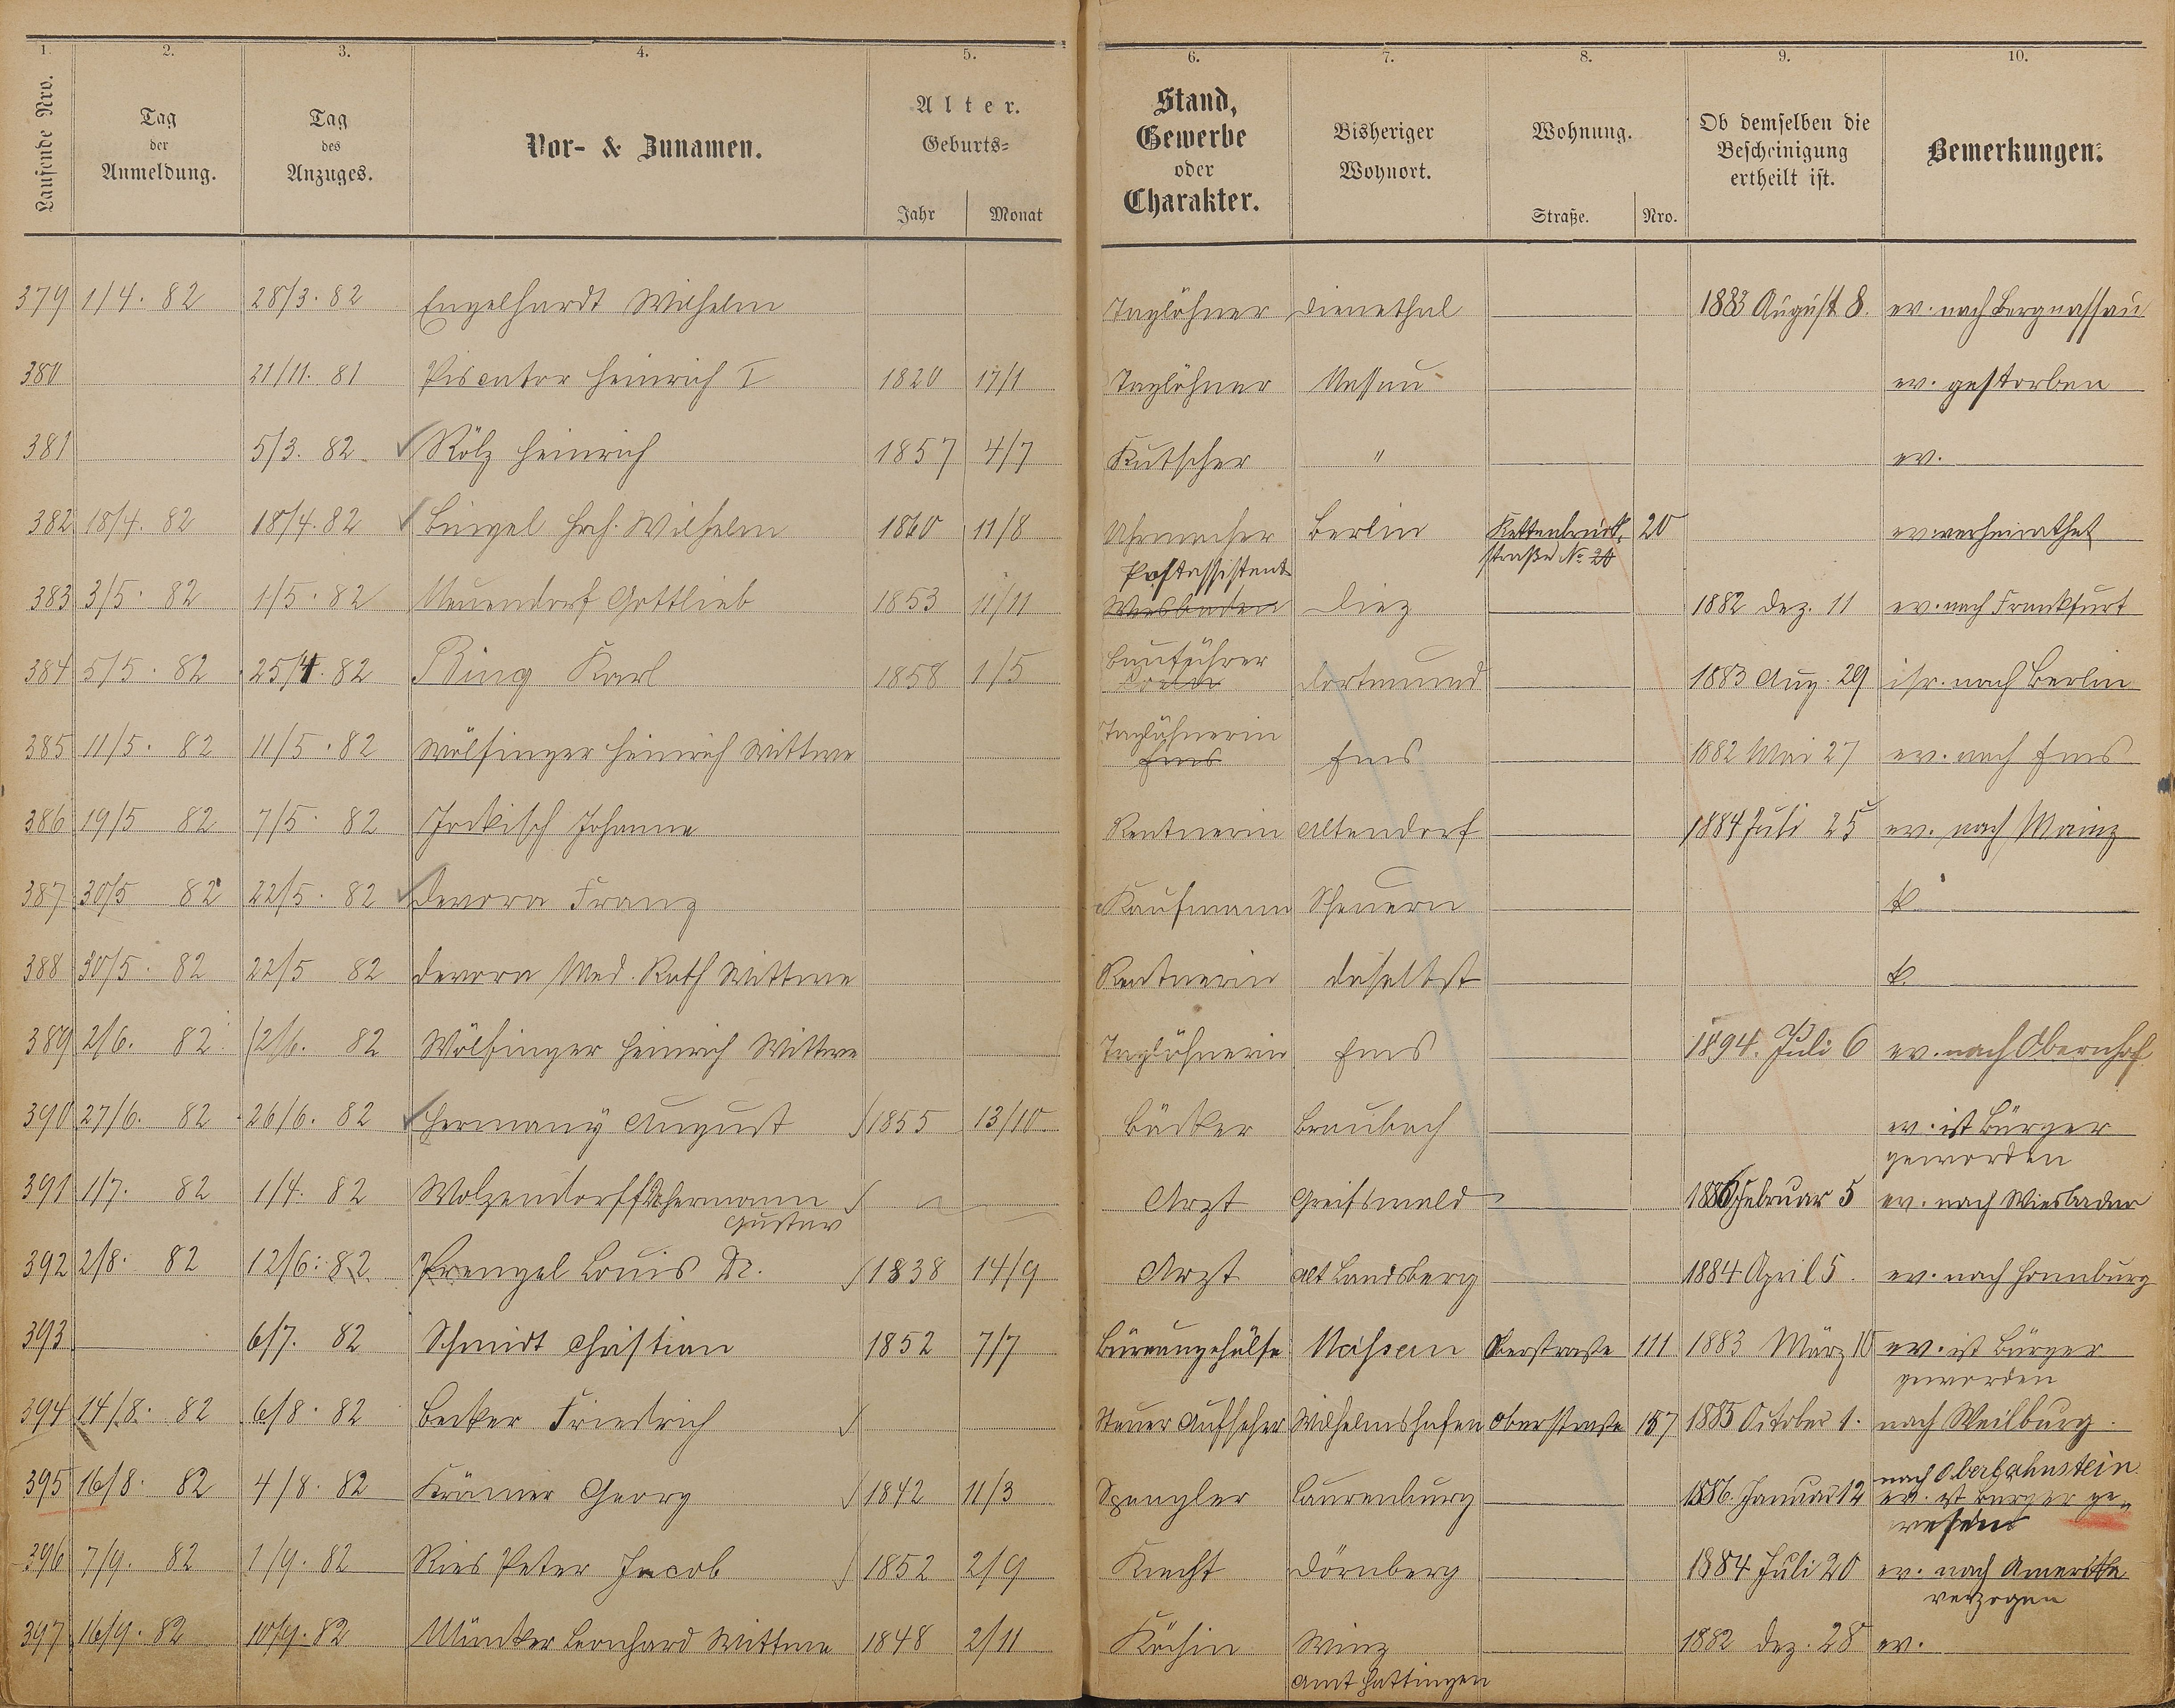 1. 2. 3. 4. 5. 6. 7. 8. 9. 10.
Laufende Nro.
Tag der Anmeldung.
Tag des Anzuges.
Vor- & Zunamen.
Alter.
Geburts-
Jahr Monat
Stand, Gewerbe oder Charakter.
Bisheriger Wohnort.
Wohnung.
Straße. Nro.
Ob demselben die Bescheinigung ertheilt ist.
Bemerkungen.
379 1/4. 82 28/3. 82 Engelhardt Wilhelm Taglöhner Dienethal 1883 August 8. ev. nach Bergnassau
380 21/11. 81 Piscator Heinrich I 1820 17/1 Taglöhner Nassau ev. gestorben
381 5/3. 82 Rölz Heinrich 1857 4/7 Kutscher " ev.
382 18/4. 82 18/4. 82 Bingel Hch. Wilhelm 1860 11/8 Uhrmacher Berlin Kettenbrück- 20 ev. verheirathet
straße No 20
Postassistent
383 3/5. 82 1/5. 82 Neuendorf Gottlieb 1853 11/11 Wiesbaden Diez 1882 Dez. 11 ev. nach Frankfurt
Bauführer
384 5/5. 82 25/4. 82 Ring Karl 1858 1/5 Dortmund 1883 Aug. 29 isr. nach Berlin
Taglöhnerin
385 11/5. 82 11/5. 82 Wölfinger Heinrich Wittwe Ems Ems 1882 Mai 27 ev. nach Ems
386 19/5 82 7/5. 82 Jockisch Johanna Rentnerin Altendorf 1884 Juli 25 ev. nach Mainz
387 30/5 82 22/5. 82 Devora Franz Kaufmann Scheuern k.
388 30/5. 82 22/5 82 Devora Med. Rath Wittwe Rentnerin daselbst k.
389 2/6. 82 2/6. 82 Wölfinger Heinrich Wittwe Taglöhnerin Ems 1894. Juli 6 ev. nach Obernhof
390 27/6. 82 26/6. 82 Hermany August 1855 13/10 Bäcker Braubach ev. ist Bürger
geworden
391 1/7. 82 1/4. 82 Wolzendorff Dr Hermann Arzt Greifswald 1886 Februar 5 ev. nach Wiesbaden
Gustav
392 2/8. 82 12/6. 82 Prengel Louis Dr. 1838 14/9 Arzt Alt Landsberg 1884 April 5. ev. nach Homburg
393 6/7. 82 Schmidt Christian 1852 7/7 Büreaugehülfe Oberstraße 111 1883 März 10 ev. ist Bürger
geworden
394 14/8. 82 6/8. 82 Becker Friedrich Steuer Aufseher Wilhelmshafen Oberstraße 157 1885 October 1. nach Weilburg.
nach Oberlahnstein
395 16/8. 82 4/8. 82 Krämer Georg 1842 11/3 Spengler Laurenburg 1886. Januar 12 ev. ist Bürger ge-
wesen
396 7/9. 82 1/9. 82 Ries Peter Jacob 1852 2/9 Knecht Dörnberg 1884 Juli 20 ev. nach Amerika
verzogen
397 16/9. 82 10/9. 82 Münker Bernhard Wittwe 1848 2/11 Köchin Winz 1882 Dez. 28 ev.
Amt Hattingen